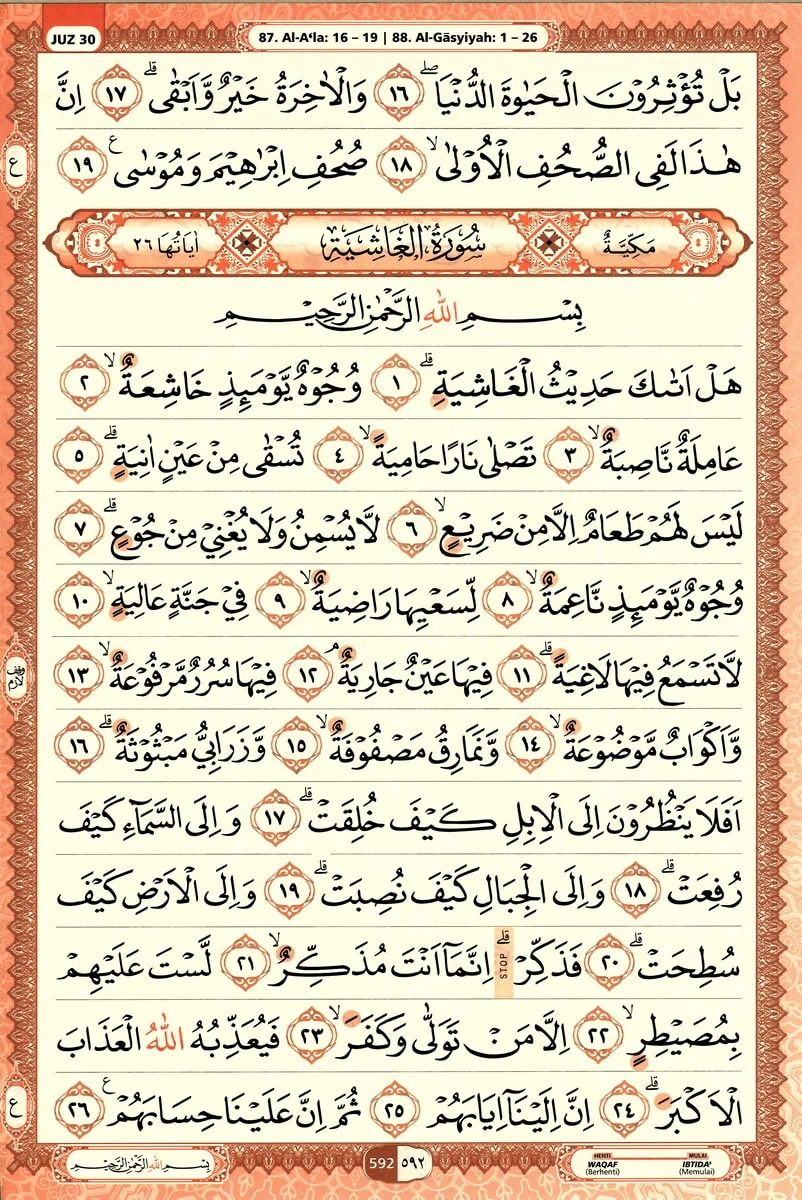 JUZ 30
87. Al-A‘la: 16 – 19 | 88. Al-Gāsyiyah: 1 – 26
بَلْ تُؤْثِرُوْنَ الْحَيٰوةَ الدُّنْيَاۖ ١٦ وَالْاٰخِرَةُ خَيْرٌ وَّاَبْقٰىۗ ١٧ اِنَّ
هٰذَا لَفِى الصُّحُفِ الْاُوْلٰىۙ ١٨ صُحُفِ اِبْرٰهِيْمَ وَمُوْسٰى ع ١٩
ع
مَكِّيَّةٌ سُوْرَةُ الْغَاشِيَةِ اٰيَاتُهَا ٢٦
بِسْمِ اللّٰهِ الرَّحْمٰنِ الرَّحِيْمِ
هَلْ اَتٰىكَ حَدِيْثُ الْغَاشِيَةِۗ ١ وُجُوْهٌ يَّوْمَىِٕذٍ خَاشِعَةٌۙ ٢
عَامِلَةٌ نَّاصِبَةٌۙ ٣ تَصْلٰى نَارًا حَامِيَةًۙ ٤ تُسْقٰى مِنْ عَيْنٍ اٰنِيَةٍۗ ٥
لَيْسَ لَهُمْ طَعَامٌ اِلَّا مِنْ ضَرِيْعٍۙ ٦ لَّا يُسْمِنُ وَلَا يُغْنِيْ مِنْ جُوْعٍۗ ٧
وُجُوْهٌ يَّوْمَىِٕذٍ نَّاعِمَةٌۙ ٨ لِّسَعْيِهَا رَاضِيَةٌۙ ٩ فِيْ جَنَّةٍ عَالِيَةٍۙ ١٠
وقف لازم
لَّا تَسْمَعُ فِيْهَا لَاغِيَةًۗ ١١ فِيْهَا عَيْنٌ جَارِيَةٌۘ ١٢ فِيْهَا سُرُرٌ مَّرْفُوْعَةٌۙ ١٣
وَّاَكْوَابٌ مَّوْضُوْعَةٌۙ ١٤ وَّنَمَارِقُ مَصْفُوْفَةٌۙ ١٥ وَّزَرَابِيُّ مَبْثُوْثَةٌۗ ١٦
اَفَلَا يَنْظُرُوْنَ اِلَى الْاِبِلِ كَيْفَ خُلِقَتْۗ ١٧ وَاِلَى السَّمَاۤءِ كَيْفَ
رُفِعَتْۗ ١٨ وَاِلَى الْجِبَالِ كَيْفَ نُصِبَتْۗ ١٩ وَاِلَى الْاَرْضِ كَيْفَ
سُطِحَتْۗ ٢٠ فَذَكِّرْۗ STOP اِنَّمَآ اَنْتَ مُذَكِّرٌۙ ٢١ لَّسْتَ عَلَيْهِمْ
بِمُصَيْطِرٍۙ ٢٢ اِلَّا مَنْ تَوَلّٰى وَكَفَرَۙ ٢٣ فَيُعَذِّبُهُ اللّٰهُ الْعَذَابَ
الْاَكْبَرَۗ ٢٤ اِنَّ اِلَيْنَآ اِيَابَهُمْ ٢٥ ثُمَّ اِنَّ عَلَيْنَا حِسَابَهُمْ ع ٢٦
ع
بِسْمِ اللّٰهِ الرَّحْمٰنِ الرَّحِيْمِ
592 ٥٩٢
HENTI
WAQAF
(Berhenti)
MULAI
IBTIDA'
(Memulai)